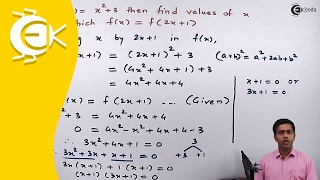 = x²+3 then find values of x
which f(x) = f(2x+1)
x by 2x+1 in f(x),
x+1) = (2x+1)² + 3 (a+b)² = a²+2ab+b²
= (4x²+4x+1)+3
= 4x²+4x+4
x+1=0 or
3x+1=0
(x) = f(2x+1) ... (Given)
²+3 = 4x²+4x+4
0 = 4x²-x²+4x+4-3
3x²+4x+1 = 0
3
3x²+3x+x+1 = 0 +3 +1
3x(x+1)+1(x+1)=0
(x+1)(3x+1)=0
Ekeeda